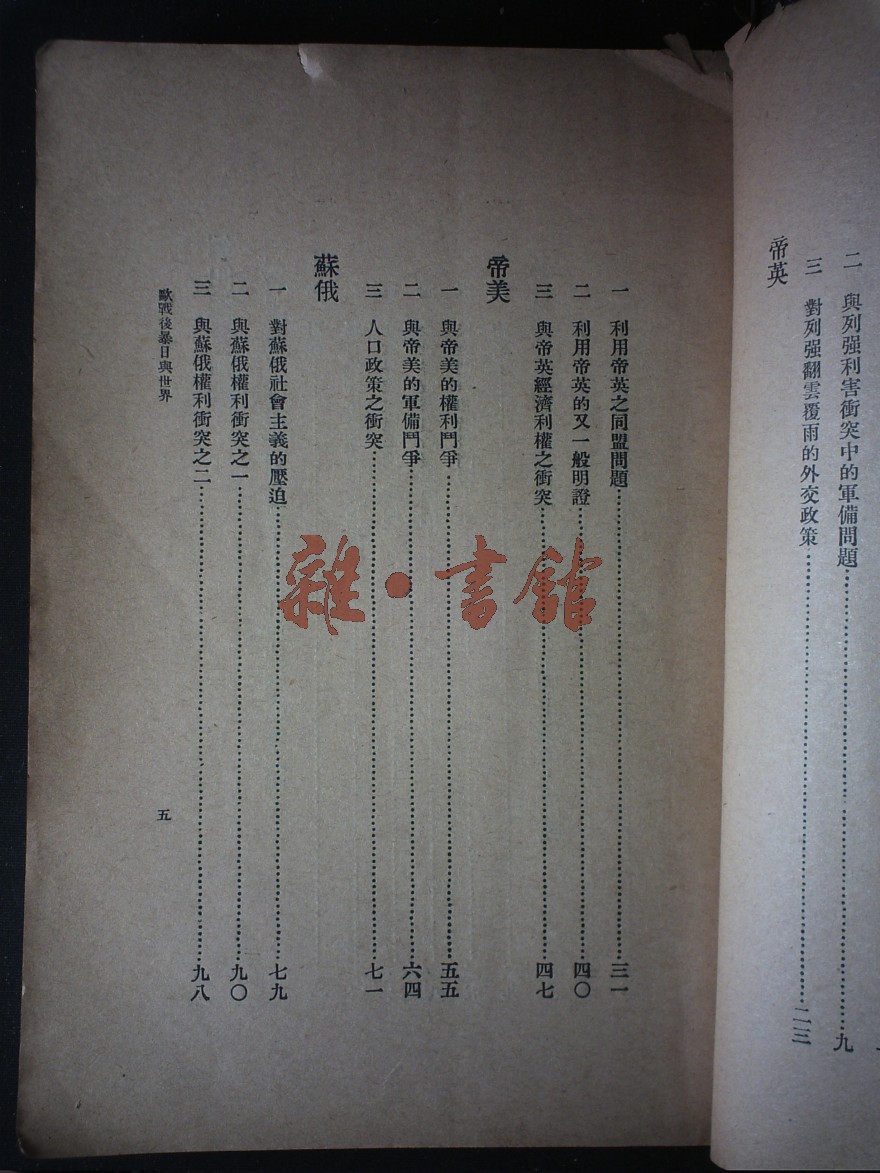 二　與列强利害衝突中的軍備問題……九
三　對列强翻雲覆雨的外交政策……二三
帝英
一　利用帝英之同盟問題……三一
二　利用帝英的又一般明證……四〇
三　與帝英經濟利權之衝突……四七
帝美
一　與帝美的權利鬥爭……五五
二　與帝美的軍備鬥爭……六四
三　人口政策之衝突……七一
蘇俄
一　對蘇俄社會主義的壓迫……七九
二　與蘇俄權利衝突之一……九〇
三　與蘇俄權利衝突之二……九八
歐戰後暴日與世界
五
雜·書館